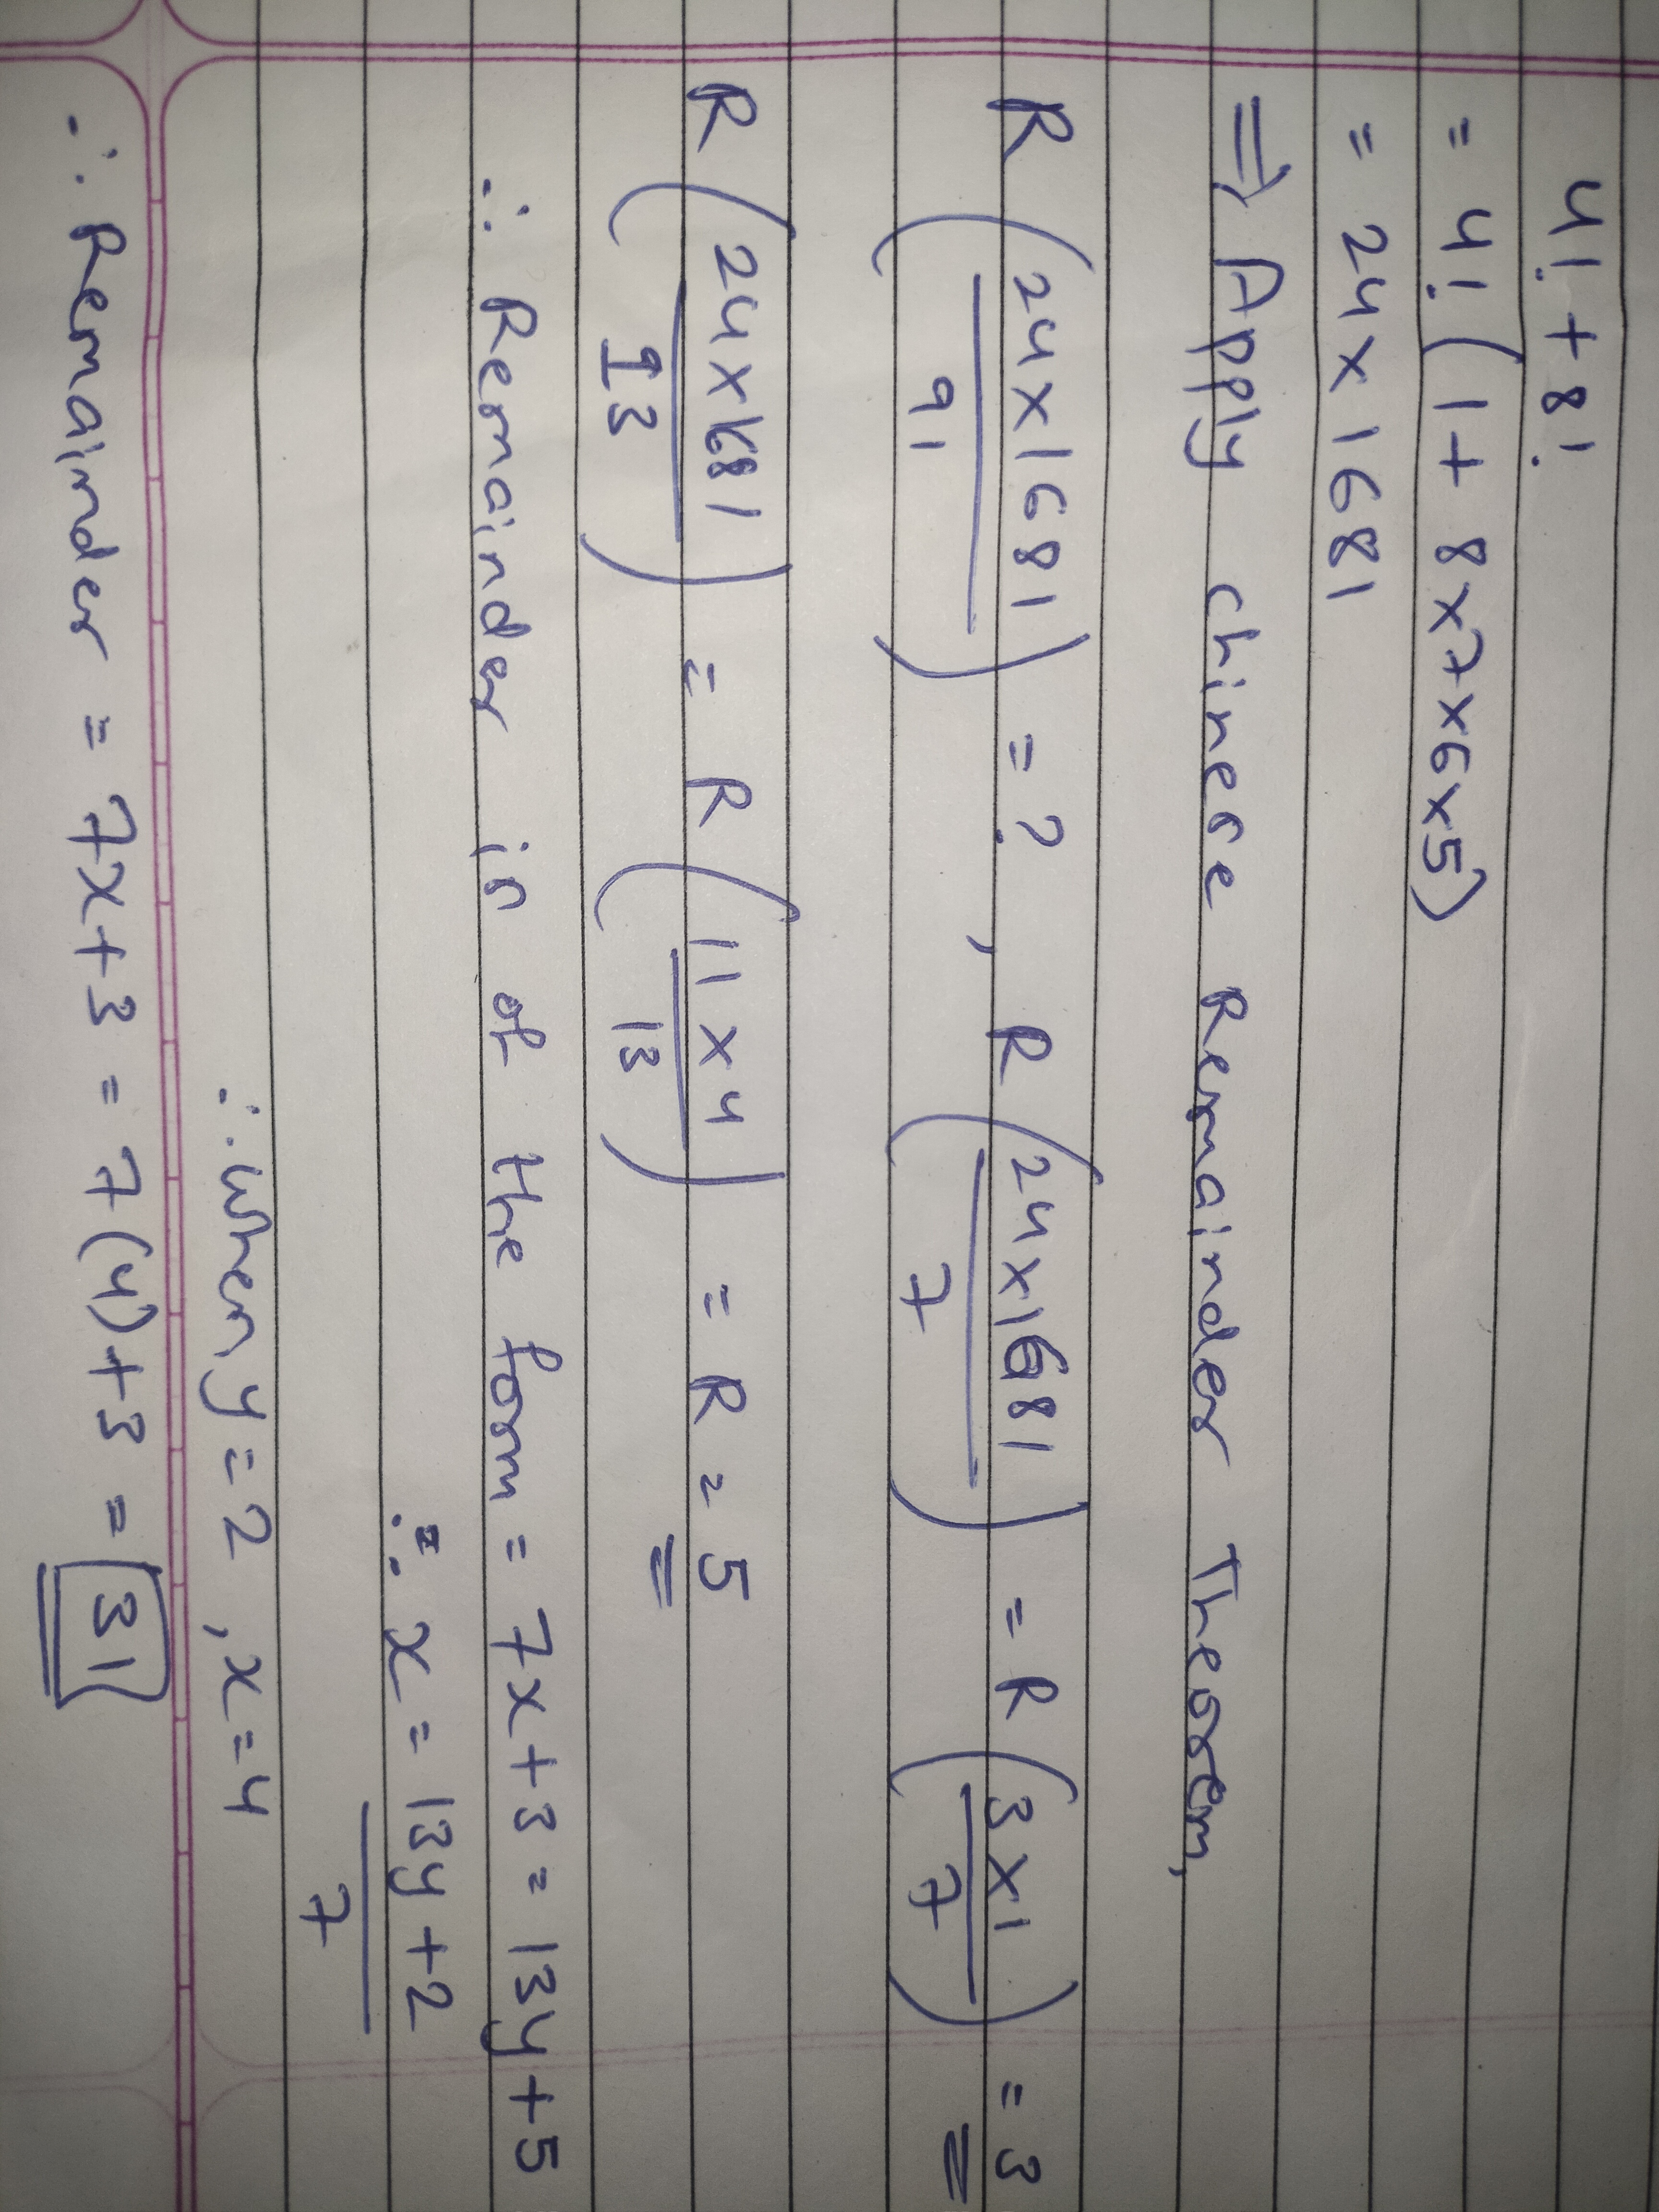 4! + 8!
= 4! (1 + 8x7x6x5)
= 24 x 1681
⇒ Apply chinese Remainder Theorem,
R (24 x 1681 / 91) = ? , R (24x1681 / 7) = R (3x1 / 7) = 3
R (24x1681 / 13) = R (11 x 4 / 13) = R = 5
∴ Remainder in of the form = 7x+3 = 13y+5
∴ x = 13y+2 / 7
∴ when y=2 , x=4
∴ Remainder = 7x+3 = 7(4)+3 = 31